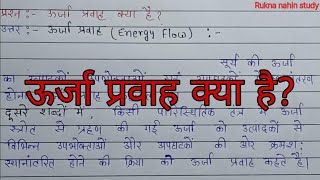 Rukna nahin study
प्रश्न:- ऊर्जा प्रवाह क्या है?
उत्तर:- ऊर्जा प्रवाह (Energy Flow) :-
सूर्य की ऊर्जा
का
ऊर्जा प्रवाह क्या है?
दूसरे शब्दों में, किसी पारिस्थितिक तंत्र में ऊर्जा
स्त्रोत से ग्रहण की गई ऊर्जा को उत्पादकों से
विभिन्न उपभोक्ताओं और अपघटकों की ओर क्रमशः
स्थानांतरित होने की क्रिया को ऊर्जा प्रवाह कहते हैं।